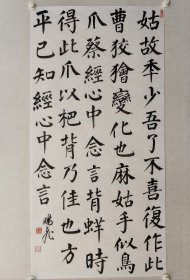 姑故年少吾了不喜復作此
曹狡獪變化也麻姑手似鳥
爪蔡經心中念言背蛘時
得此爪以杷背乃佳也方
平已知經心中念言